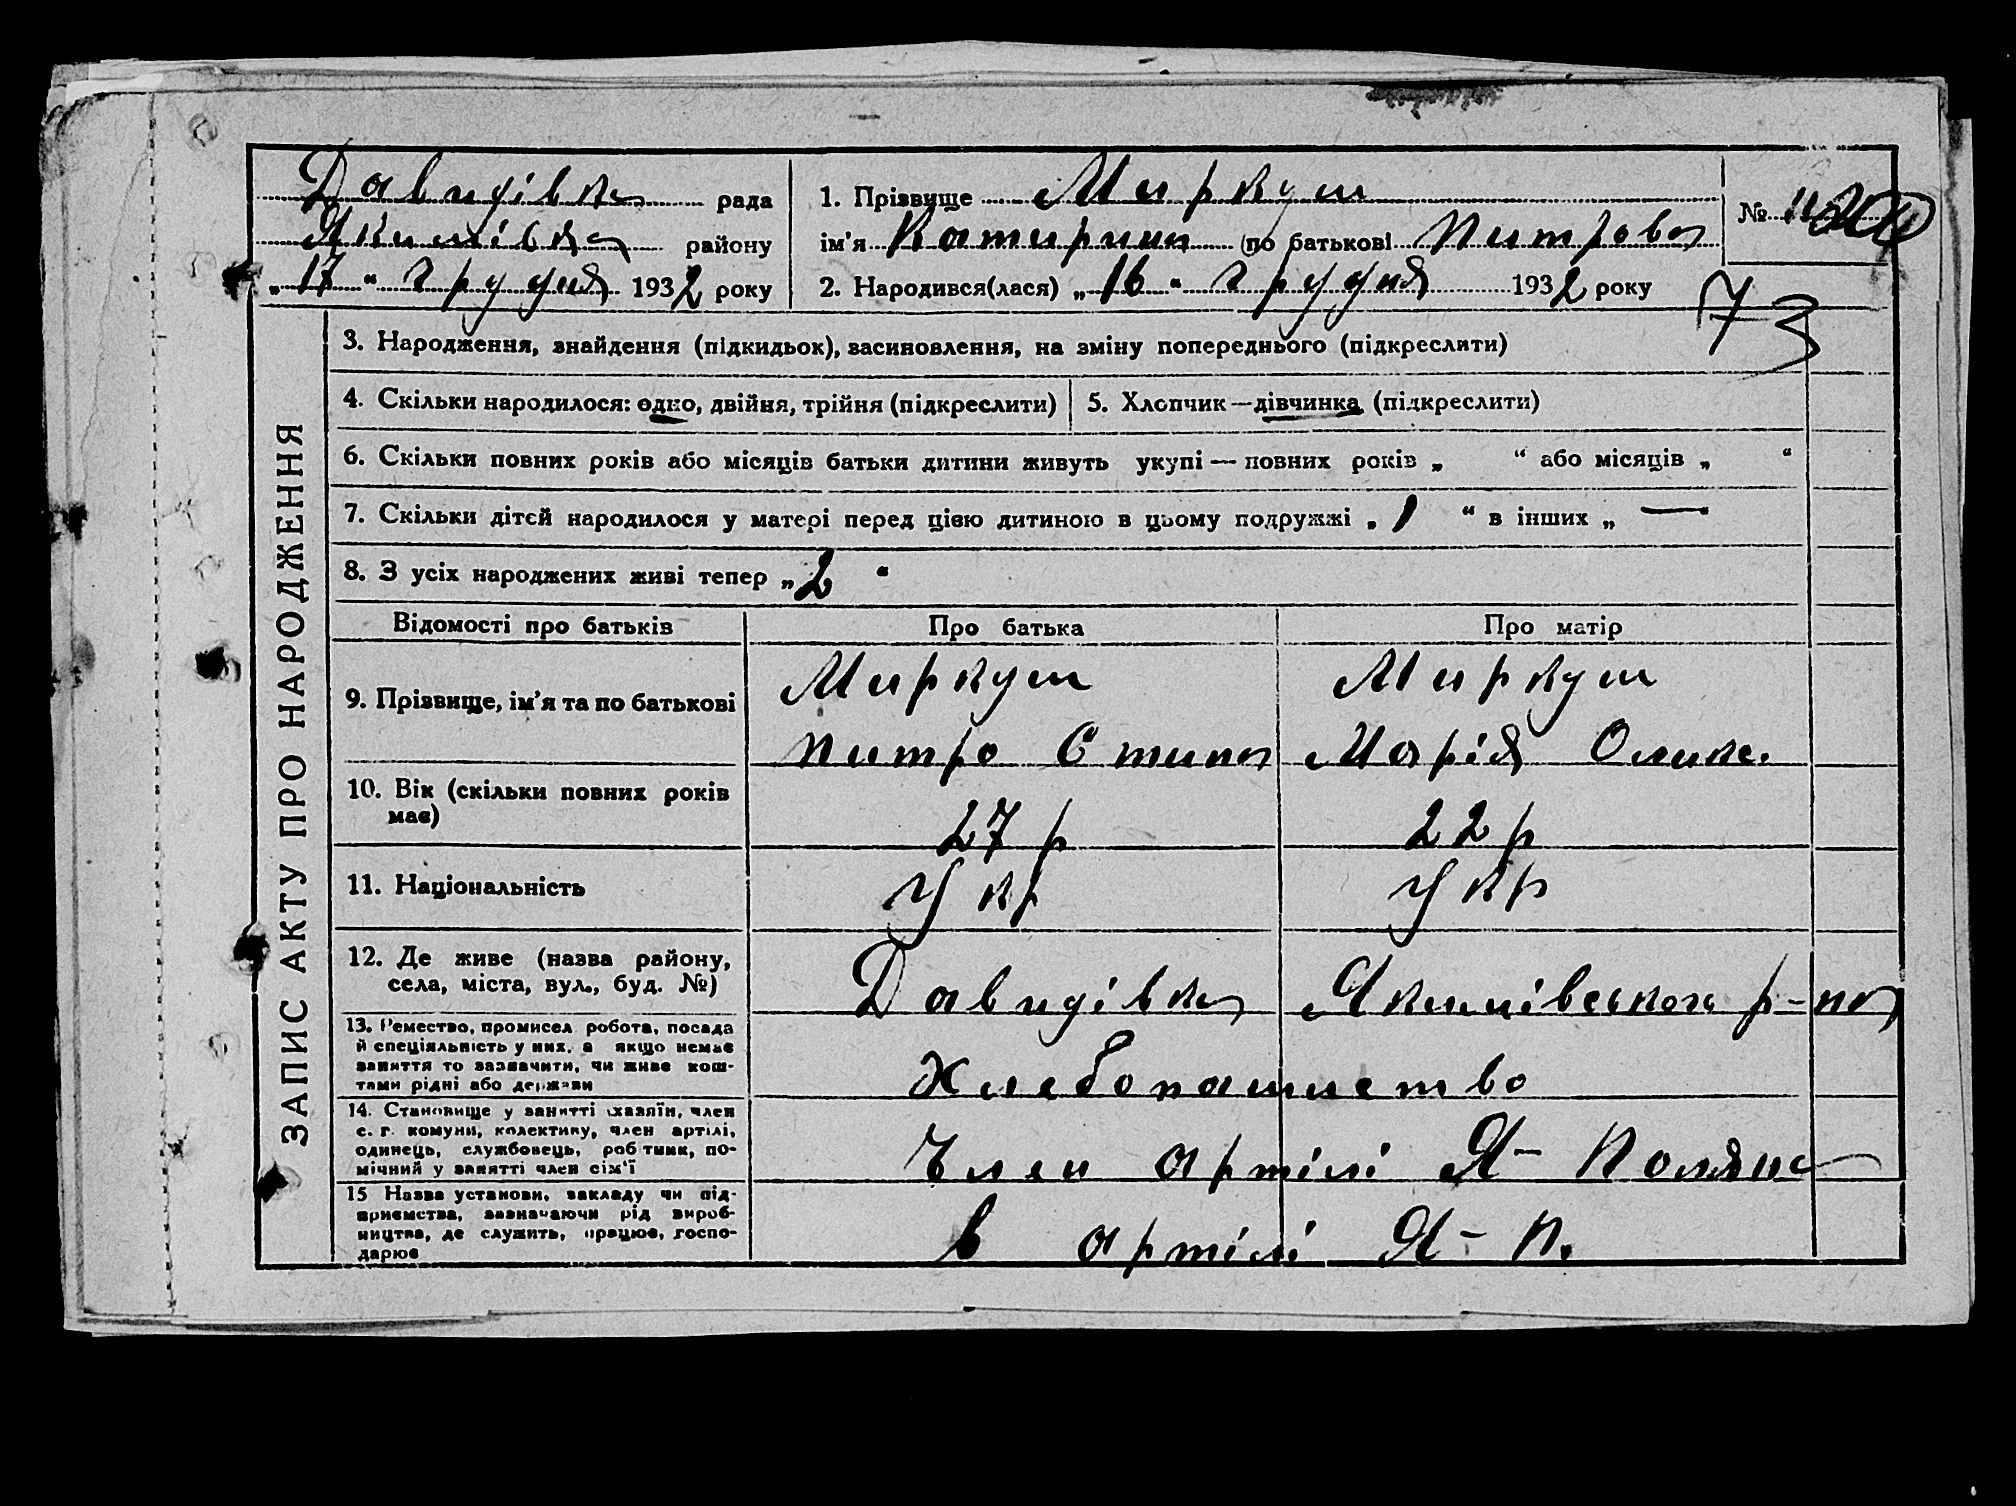 Давидівка рада
Якимівка району
„17“ грудня 1932 року
1. Прізвище Миркуш
ім'я Катирина (по батькові Питрова
2. Народився(лася) „16“ грудня 1932 року
№
73
ЗАПИС АКТУ ПРО НАРОДЖЕННЯ
3. Народження, знайдення (підкидьок), засиновлення, на зміну попереднього (підкреслити)
4. Скільки народилося: одно, двійня, трійня (підкреслити)
5. Хлопчик—дівчинка (підкреслити)
6. Скільки повних років або місяців батьки дитини живуть укупі — повних років „ “ або місяців „ “
7. Скільки дітей народилося у матері перед цією дитиною в цьому подружжі „1 “ в інших „ —
8. З усіх народжених живі тепер „2 “
Відомості про батьків Про батька Про матір
9. Прізвище, ім'я та по батькові
Миркуш Миркуш
Питро Стипа Марія Олике.
10. Вік (скільки повних років
має)
27 р 22 р
11. Національність Укр Укр
12. Де живе (назва району,
села, міста, вул., буд. №)
Давидівка Якимівського р-на
13. Ремество, промисел робота, посада
й спеціяльність у них, а якщо немає
заняття то зазначити, чи живе кош-
тами рідні або держави
Хлебопашество
14. Становище у занятті (хазяїн, член
с. г. комуни, колективу, член артілі,
одинець, службовець, робітник, по-
мічний у занятті член сім'ї
Член артілі Я- Поляна
15 Назва установи, закладу чи під-
приємства, зазначаючи рід вироб-
ництва, де служить, працює, госпо-
дарює
в артілі Я- П.